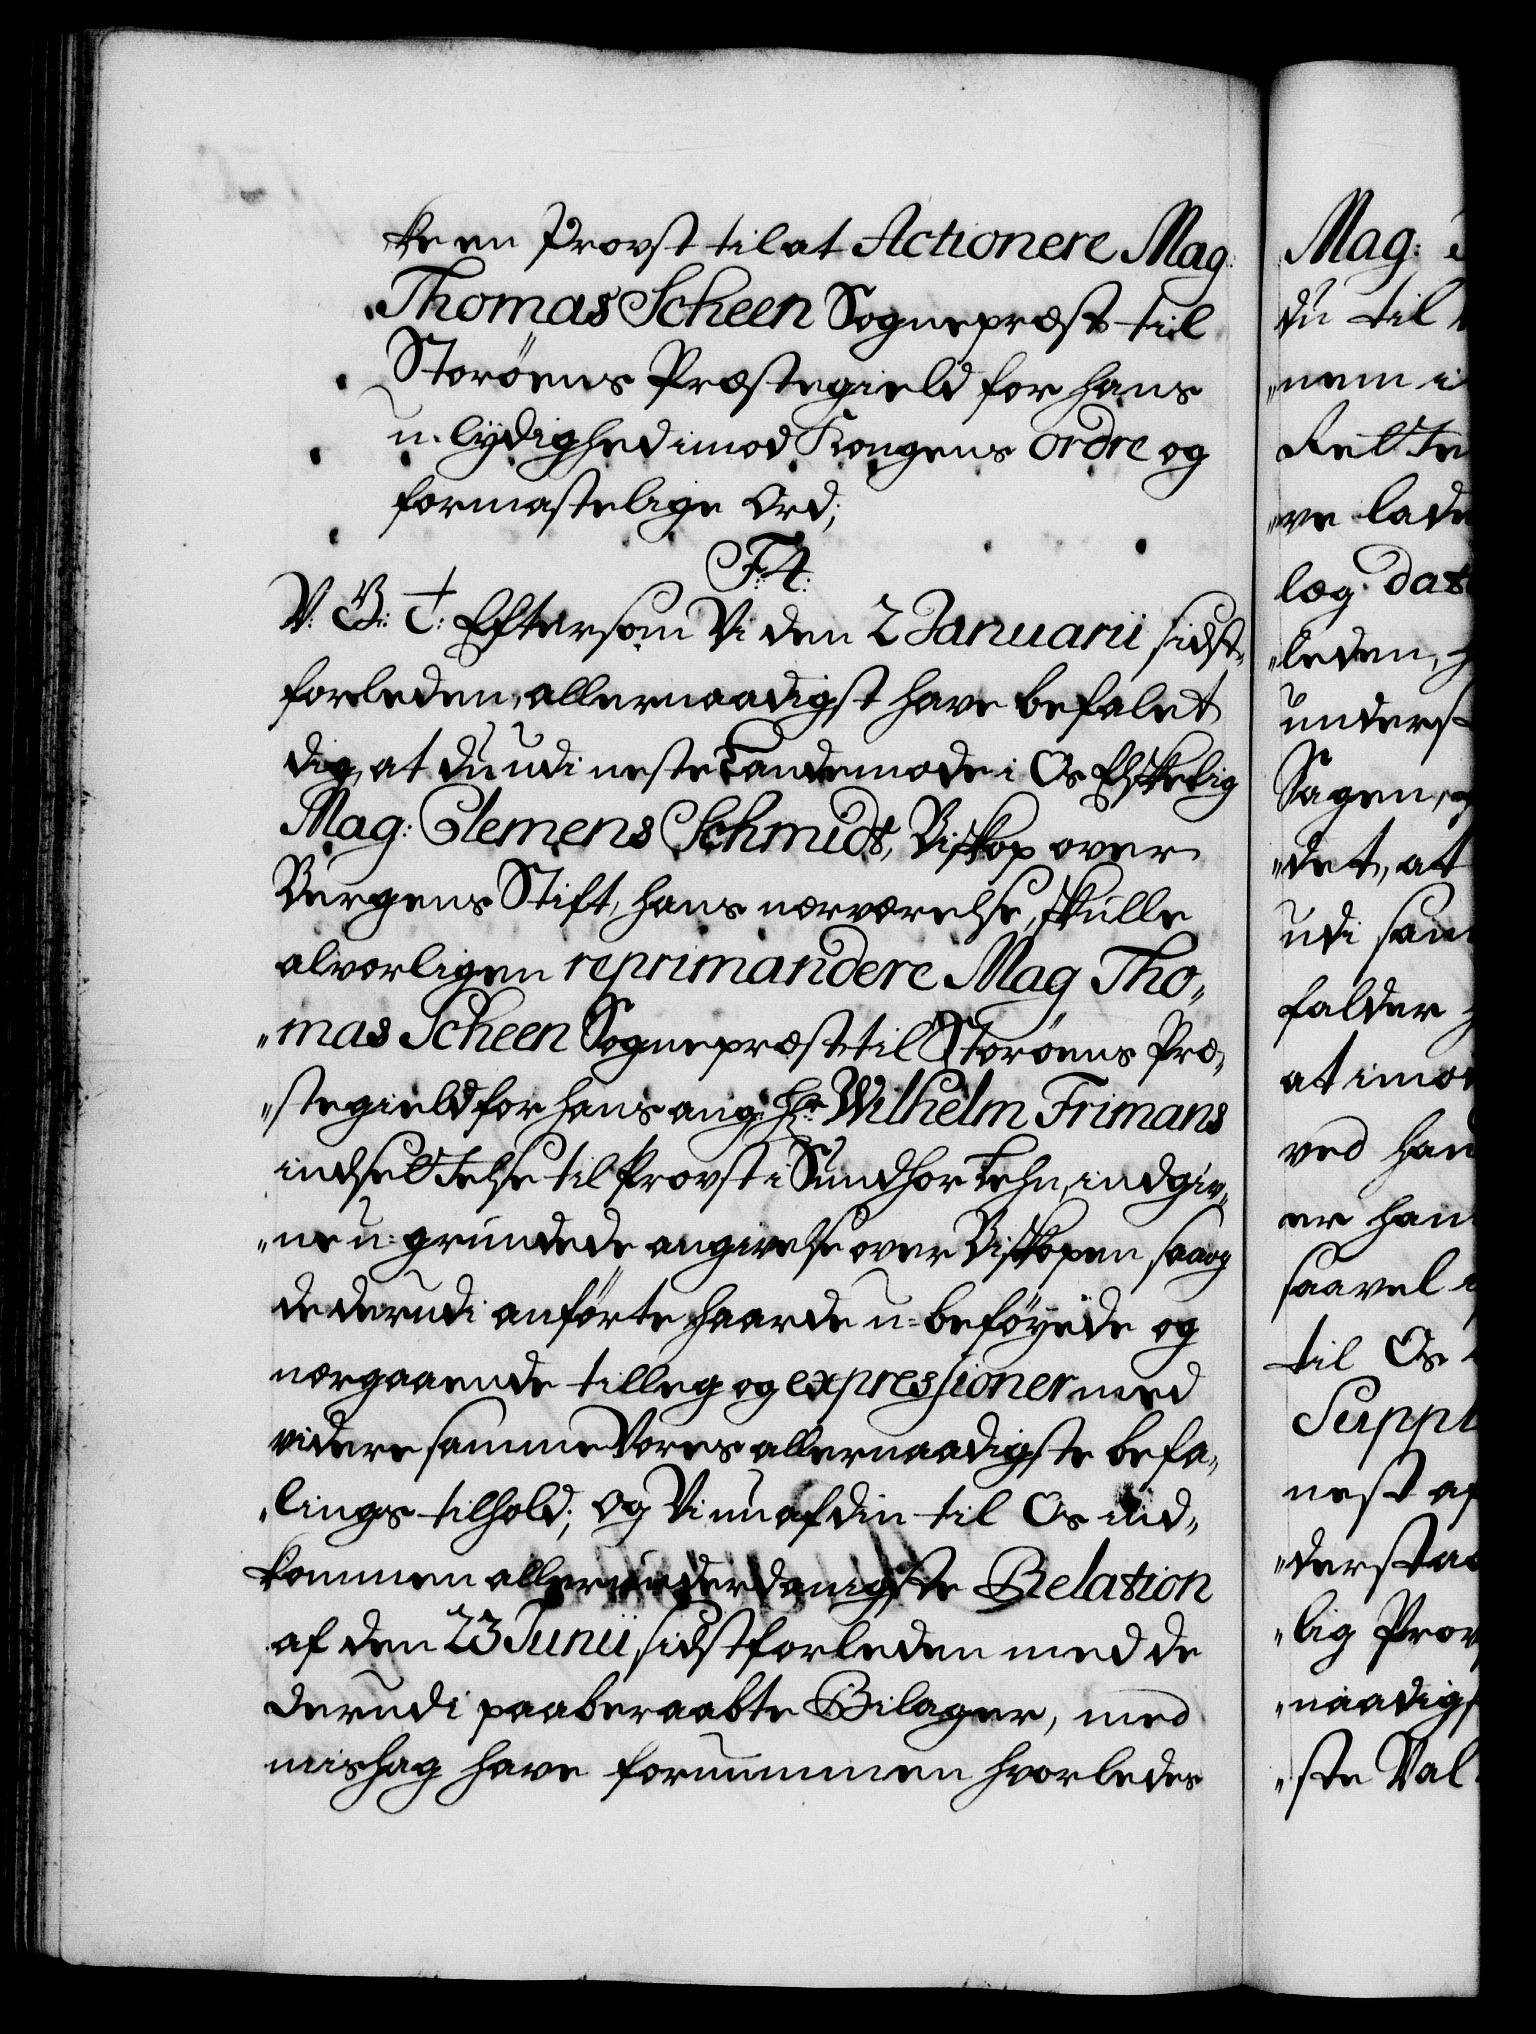 ke en Provst til at Actionere Mag:
Thomas Scheen Sognepræst til
Storöens Præstegield for hans
u-lydighed imod Kongens ordre og
formastelige Ord;
F: 4:
V. G: T: Eftersom Vi den 2 Januarii sidst„
forleden, allernaadigst have befalet
dig, at du udi neste Landemode i Os Elskelig
Mag: Clemens Schmidt, Biskop over
Bergens Stift, hans nærværelse, skulle
alvorligen reprimandere Mag Tho„
„mas Scheen Sognepræst til Storöens Præ„
„stegield for hans ang: Hr: Wilhelm Frimans
indsettelse til Provst i Sundhor Lehn, indgiv„
„ne u-grundede angivelse over Biskopen saa og
de derudi anförte haarde u-beföyede og
nærgaaende tilleg og expressioner med
videre samme Vores allernaadigste befa„
„lings tilhold; og Vi nu af din til Os ind„
kommen allerunderdanigste Relation
af den 23 Junii sidstforleden med de
derudi paaberaabte Bilager, med
mishag have fornummen hvorledes
Mag:
du til
„nem i
Rette
„ve lade
læg dat
„leden,
underst
Sagen,
„det, at
udi sam
falder
at imod
ved han
er han
saavel
til Os
Suppl
nest af
„derstaa
„lig Prov
„naadigs
„ste Val